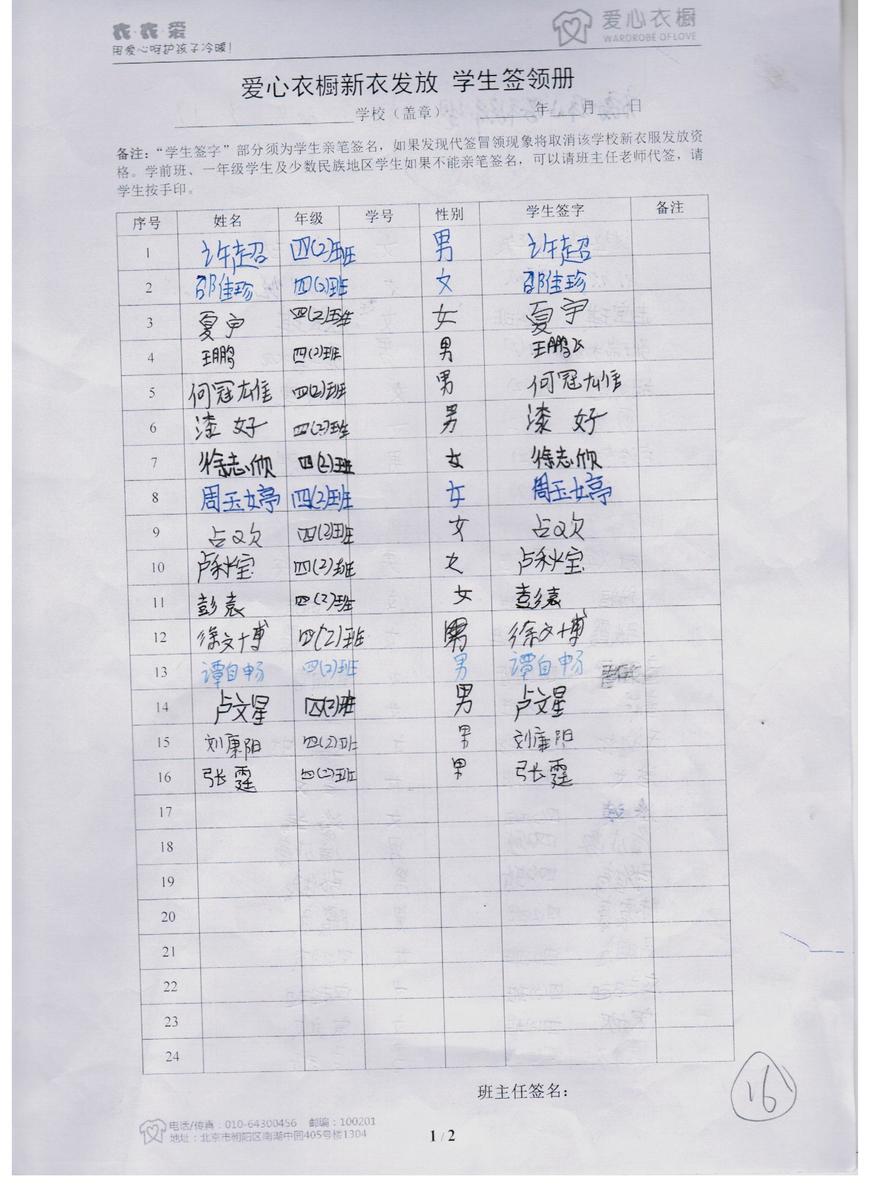 衣·衣·爱
用爱心呵护孩子冷暖！
爱心衣橱
WARDROBE OF LOVE
爱心衣橱新衣发放 学生签领册
学校（盖章） 年 月 日
备注：“学生签字”部分须为学生亲笔签名，如果发现代签冒领现象将取消该学校新衣服发放资
格。学前班、一年级学生及少数民族地区学生如果不能亲笔签名，可以请班主任老师代签，请
学生按手印。
序号 姓名 年级 学号 性别 学生签字 备注
1 许超 四(2)班 男 许超
2 邵佳珍 四(2)班 女 邵佳珍
3 夏宇 四(2)班 女 夏宇
4 王鹏 四(2)班 男 王鹏飞
5 何冠雄 四(2)班 男 何冠雄
6 漆好 四(2)班 男 漆好
7 徐志欣 四(2)班 女 徐志欣
8 周玉婷 四(2)班 女 周玉婷
9 占文欢 四(2)班 女 占文欢
10 卢秋宝 四(2)班 女 卢秋宝
11 彭袁 四(2)班 女 彭袁
12 徐文博 四(2)班 男 徐文博
13 谭自畅 四(2)班 男 谭自畅
14 卢文星 四(2)班 男 卢文星
15 刘康阳 四(2)班 男 刘康阳
16 张霆 四(2)班 男 张霆
17
18
19
20
21
22
23
24
班主任签名：
16
电话/传真：010-64300456 邮编：100201
地址：北京市朝阳区南湖中园405号楼1304
1 / 2